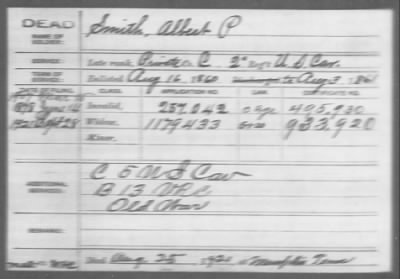 DEAD
Smith, Albert P
NAME OF
SOLDIER:
SERVICE: Late rank, Private Co. C, 2" Reg't U.S. Cav.
TERM OF
SERVICE: Enlisted Aug 16, 1860 to Aug 3, 1861
DATE OF FILING. CLASS. APPLICATION NO. LAW. CERTIFICATE NO.
1898 Invalid, 257,042 495,930
Sept 28 Widow, 1179433 933,920
Minor,
ADDITIONAL
SERVICES:
C 5 U S Cav
B 13 VRC
Old War
REMARKS:
Died Aug 25, 1921 at Memphis Tenn